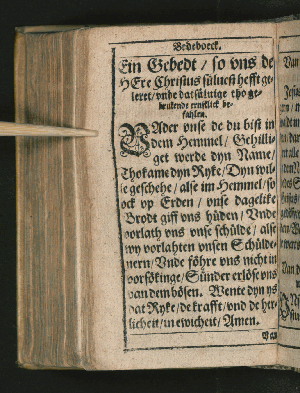 Bedeboeck.
Ein Gebedt / so vns de
HEre Christus sülvest hefft ge-
leret / vnde datsülvige tho ge-
brukende ernstlick be-
fahlen.
VAder vnse de du bist in
dem Hemmel / Gehilli-
get werde dyn Name /
Thokame dyn Ryke / Dyn wil-
le geschehe / alse im Hemmel / so
ock vp Erden / vnse dagelike
Brodt giff vns hüden / Vnde
vorlath vns vnse schülde / alse
wy vorlahten vnsen Schülde-
nern / Vnde föhre vns nicht in
vorsökinge / Sünder erlöse vns
van dem bösen. Wente dyn ys
dat Ryke / de krafft / vnd de her-
licheit / in ewicheit / Amen.
Van